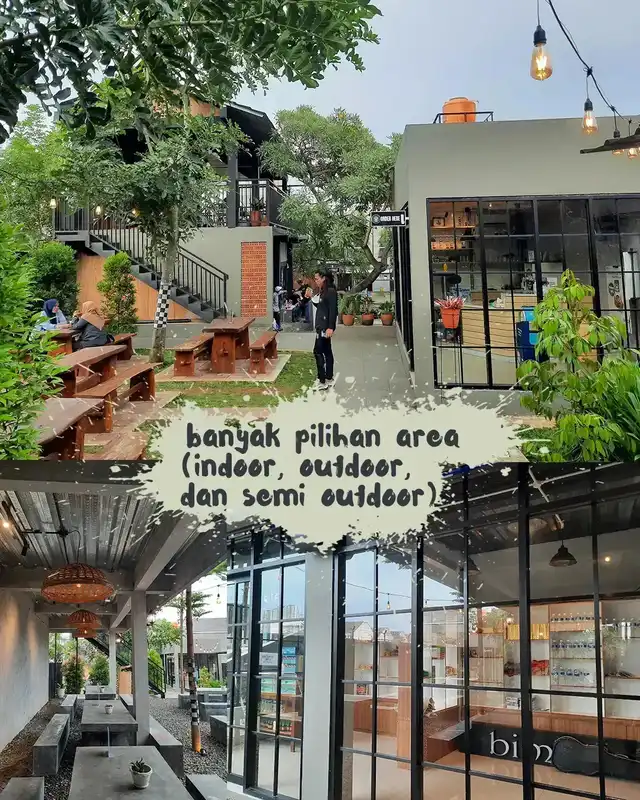 ORDER HERE
banyak pilihan area
(indoor, outdoor,
dan semi outdoor)
bim